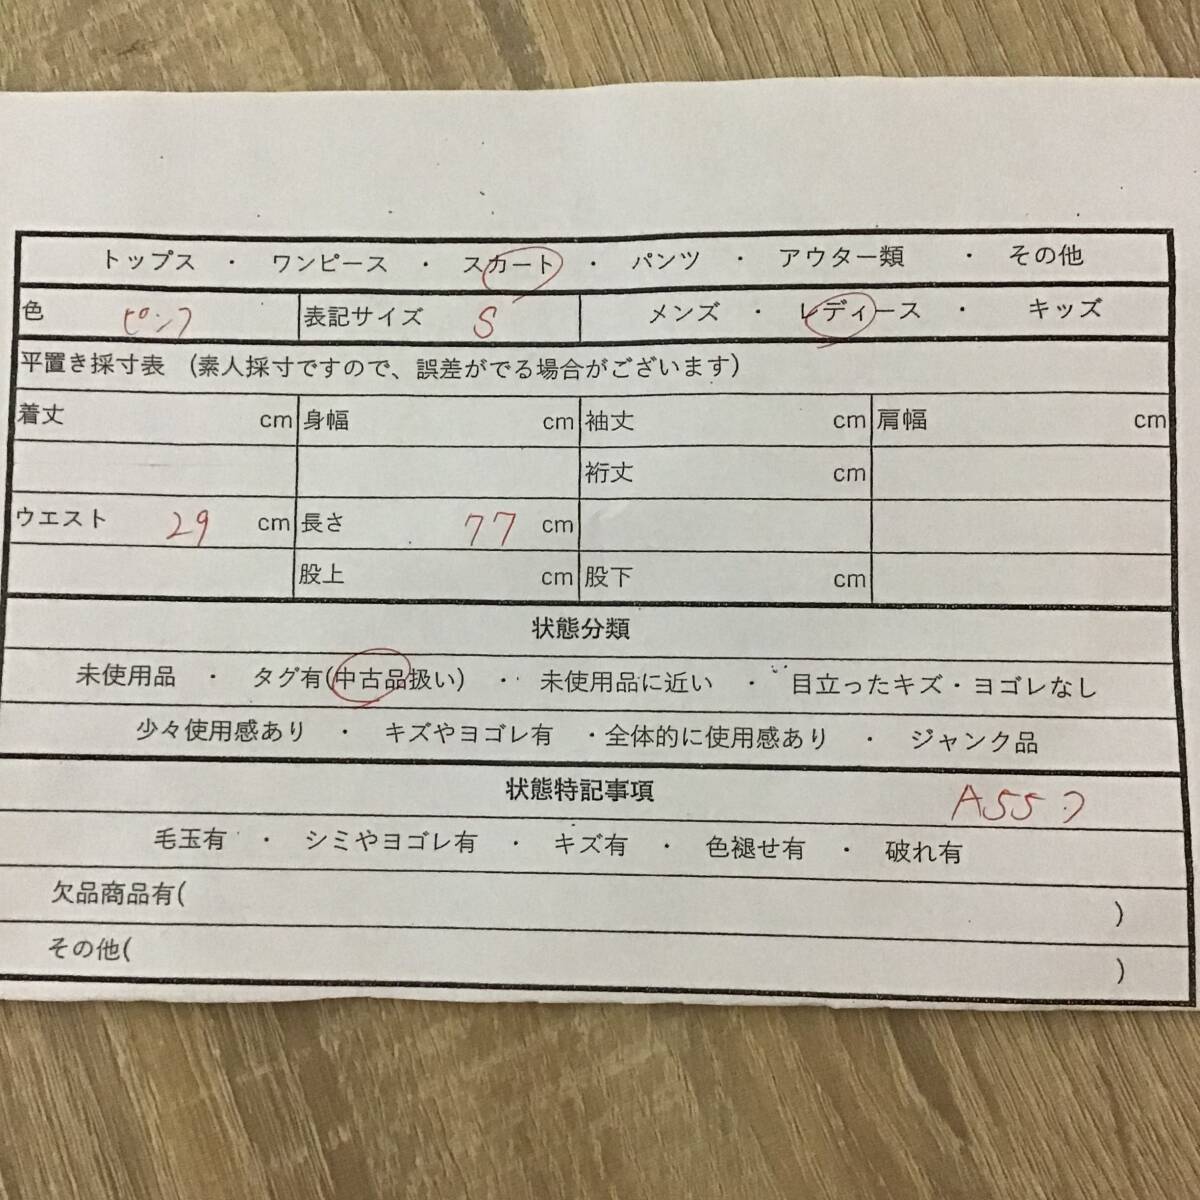 トップス ・ ワンピース ・ スカート ・ パンツ ・ アウター類 ・ その他
色 ピンク 表記サイズ S メンズ ・ レディース ・ キッズ
平置き採寸表 (素人採寸ですので、誤差がでる場合がございます)
着丈 cm 身幅 cm 袖丈 cm 肩幅 cm
裄丈 cm
ウエスト 29 cm 長さ 77 cm
股上 cm 股下 cm
状態分類
未使用品 ・ タグ有(中古品扱い) ・ 未使用品に近い ・ 目立ったキズ・ヨゴレなし
少々使用感あり ・ キズやヨゴレ有 ・全体的に使用感あり ・ ジャンク品
状態特記事項
毛玉有 ・ シミやヨゴレ有 ・ キズ有 ・ 色褪せ有 ・ 破れ有
欠品商品有( )
その他( )